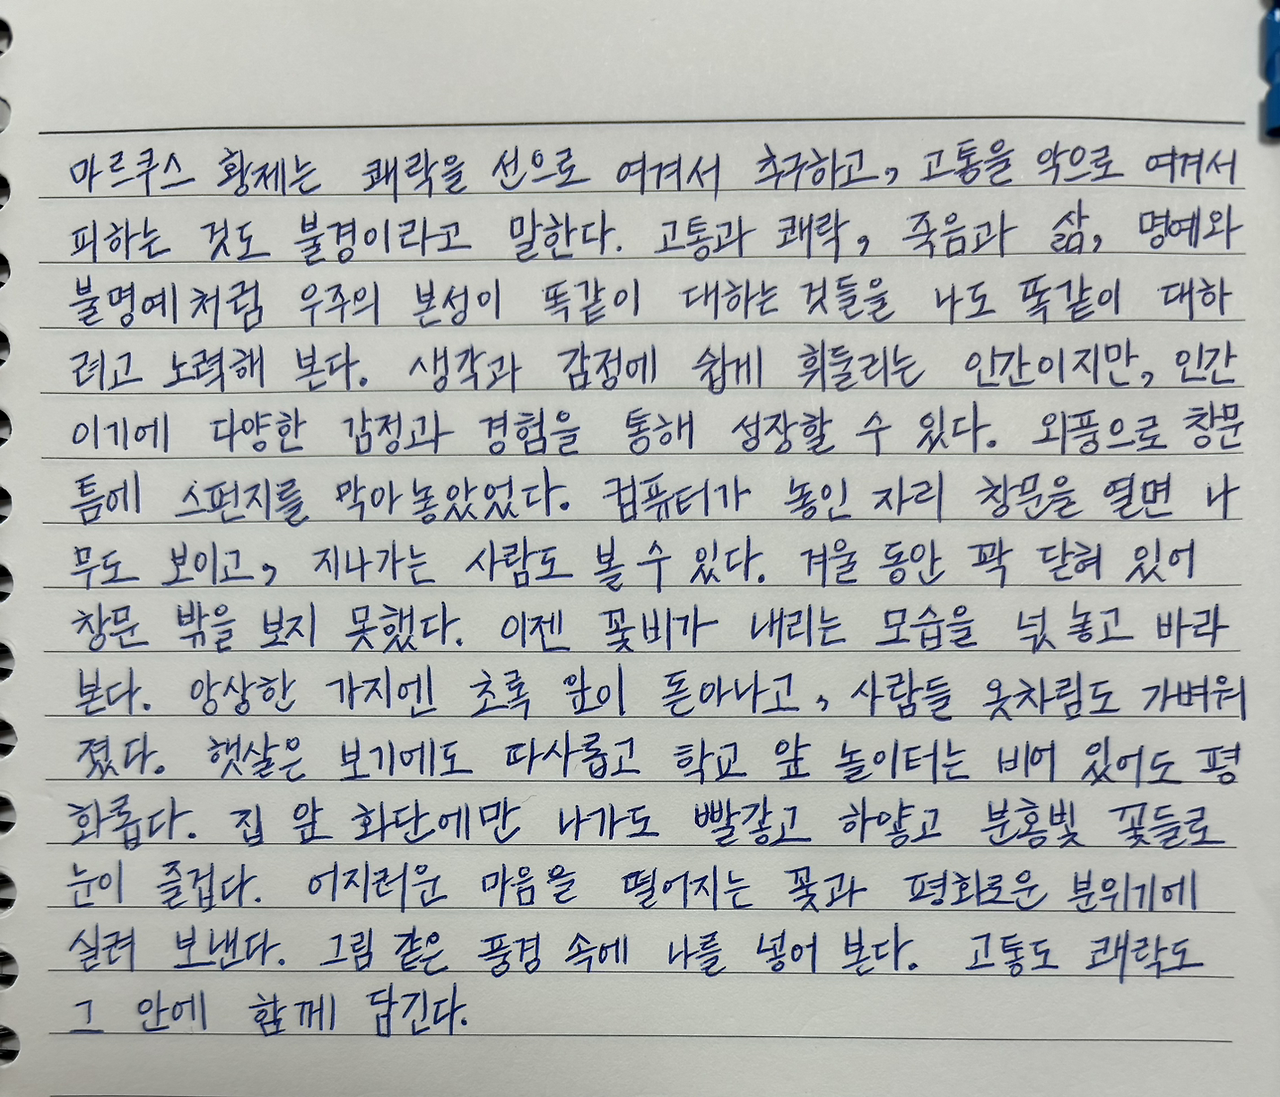 마르쿠스 황제는 쾌락을 선으로 여겨서 추구하고, 고통을 악으로 여겨서
피하는 것도 불경이라고 말한다. 고통과 쾌락, 죽음과 삶, 명예와
불명예처럼 우주의 본성이 똑같이 대하는 것들을 나도 똑같이 대하
려고 노력해 본다. 생각과 감정에 쉽게 휘둘리는 인간이지만, 인간
이기에 다양한 감정과 경험을 통해 성장할 수 있다. 외풍으로 창문
틈에 스펀지를 막아놓았었다. 컴퓨터가 놓인 자리 창문을 열면 나
무도 보이고, 지나가는 사람도 볼 수 있다. 겨울 동안 꽉 닫혀 있어
창문 밖을 보지 못했다. 이젠 꽃비가 내리는 모습을 넋 놓고 바라
본다. 앙상한 가지엔 초록 잎이 돋아나고, 사람들 옷차림도 가벼워
졌다. 햇살은 보기에도 따사롭고 학교 앞 놀이터는 비어 있어도 평
화롭다. 집 앞 화단에만 나가도 빨갛고 하얗고 분홍빛 꽃들로
눈이 즐겁다. 어지러운 마음을 떨어지는 꽃과 평화로운 분위기에
실려 보낸다. 그림 같은 풍경 속에 나를 넣어 본다. 고통도 쾌락도
그 안에 함께 담긴다.